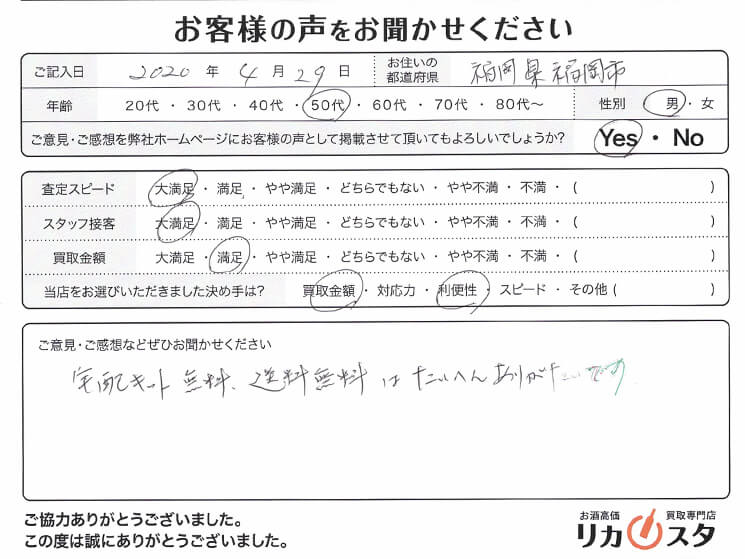 お客様の声をお聞かせください
ご記入日 2020 年 4 月 29 日 お住いの都道府県 福岡県福岡市
年齢 20代 ・ 30代 ・ 40代 ・ 50代 ・ 60代 ・ 70代 ・ 80代〜 性別 男 ・ 女
ご意見・ご感想を弊社ホームページにお客様の声として掲載させて頂いてもよろしいでしょうか? Yes ・ No
査定スピード 大満足 ・ 満足 ・ やや満足 ・ どちらでもない ・ やや不満 ・ 不満 ・ ( )
スタッフ接客 大満足 ・ 満足 ・ やや満足 ・ どちらでもない ・ やや不満 ・ 不満 ・ ( )
買取金額 大満足 ・ 満足 ・ やや満足 ・ どちらでもない ・ やや不満 ・ 不満 ・ ( )
当店をお選びいただきました決め手は? 買取金額 ・ 対応力 ・ 利便性 ・ スピード ・ その他 ( )
ご意見・ご感想などぜひお聞かせください
宅配キット無料、送料無料はたいへんありがたいです
ご協力ありがとうございました。
この度は誠にありがとうございました。
お酒高価 買取専門店
リカスタ